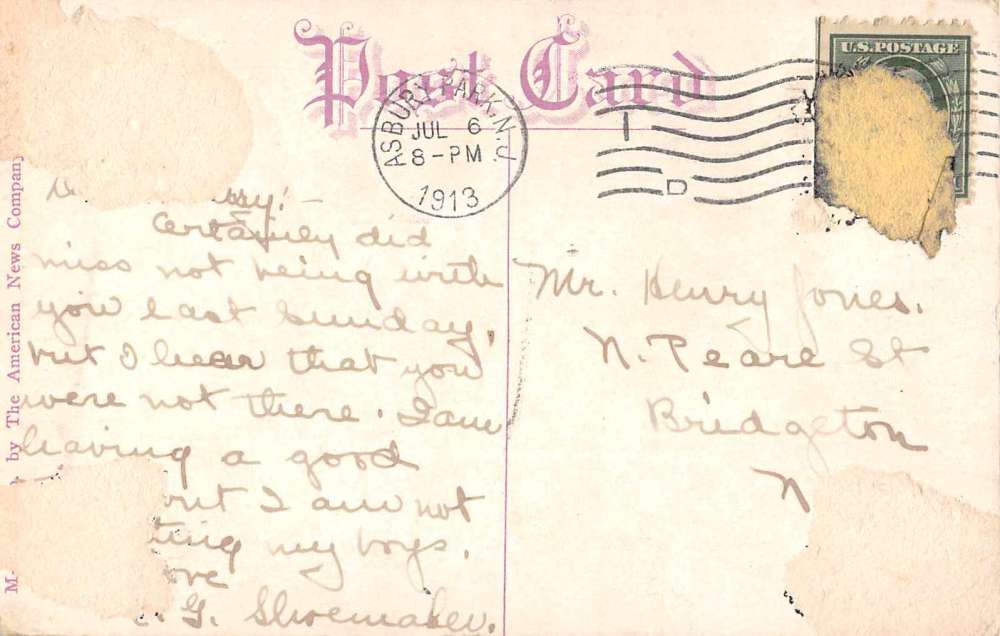 Post Card
U.S. POSTAGE
ASBURY PARK, N.J.
JUL 6
8-PM
1913
1
D
by The American News Company
Certainly did
miss not being with
you last Sunday,
but I hear that you
were not there. I am
having a good
but I am not
my boys.
G. Shoemaker.
Mr. Henry Jones.
N. Pearl St
Bridgeton
N